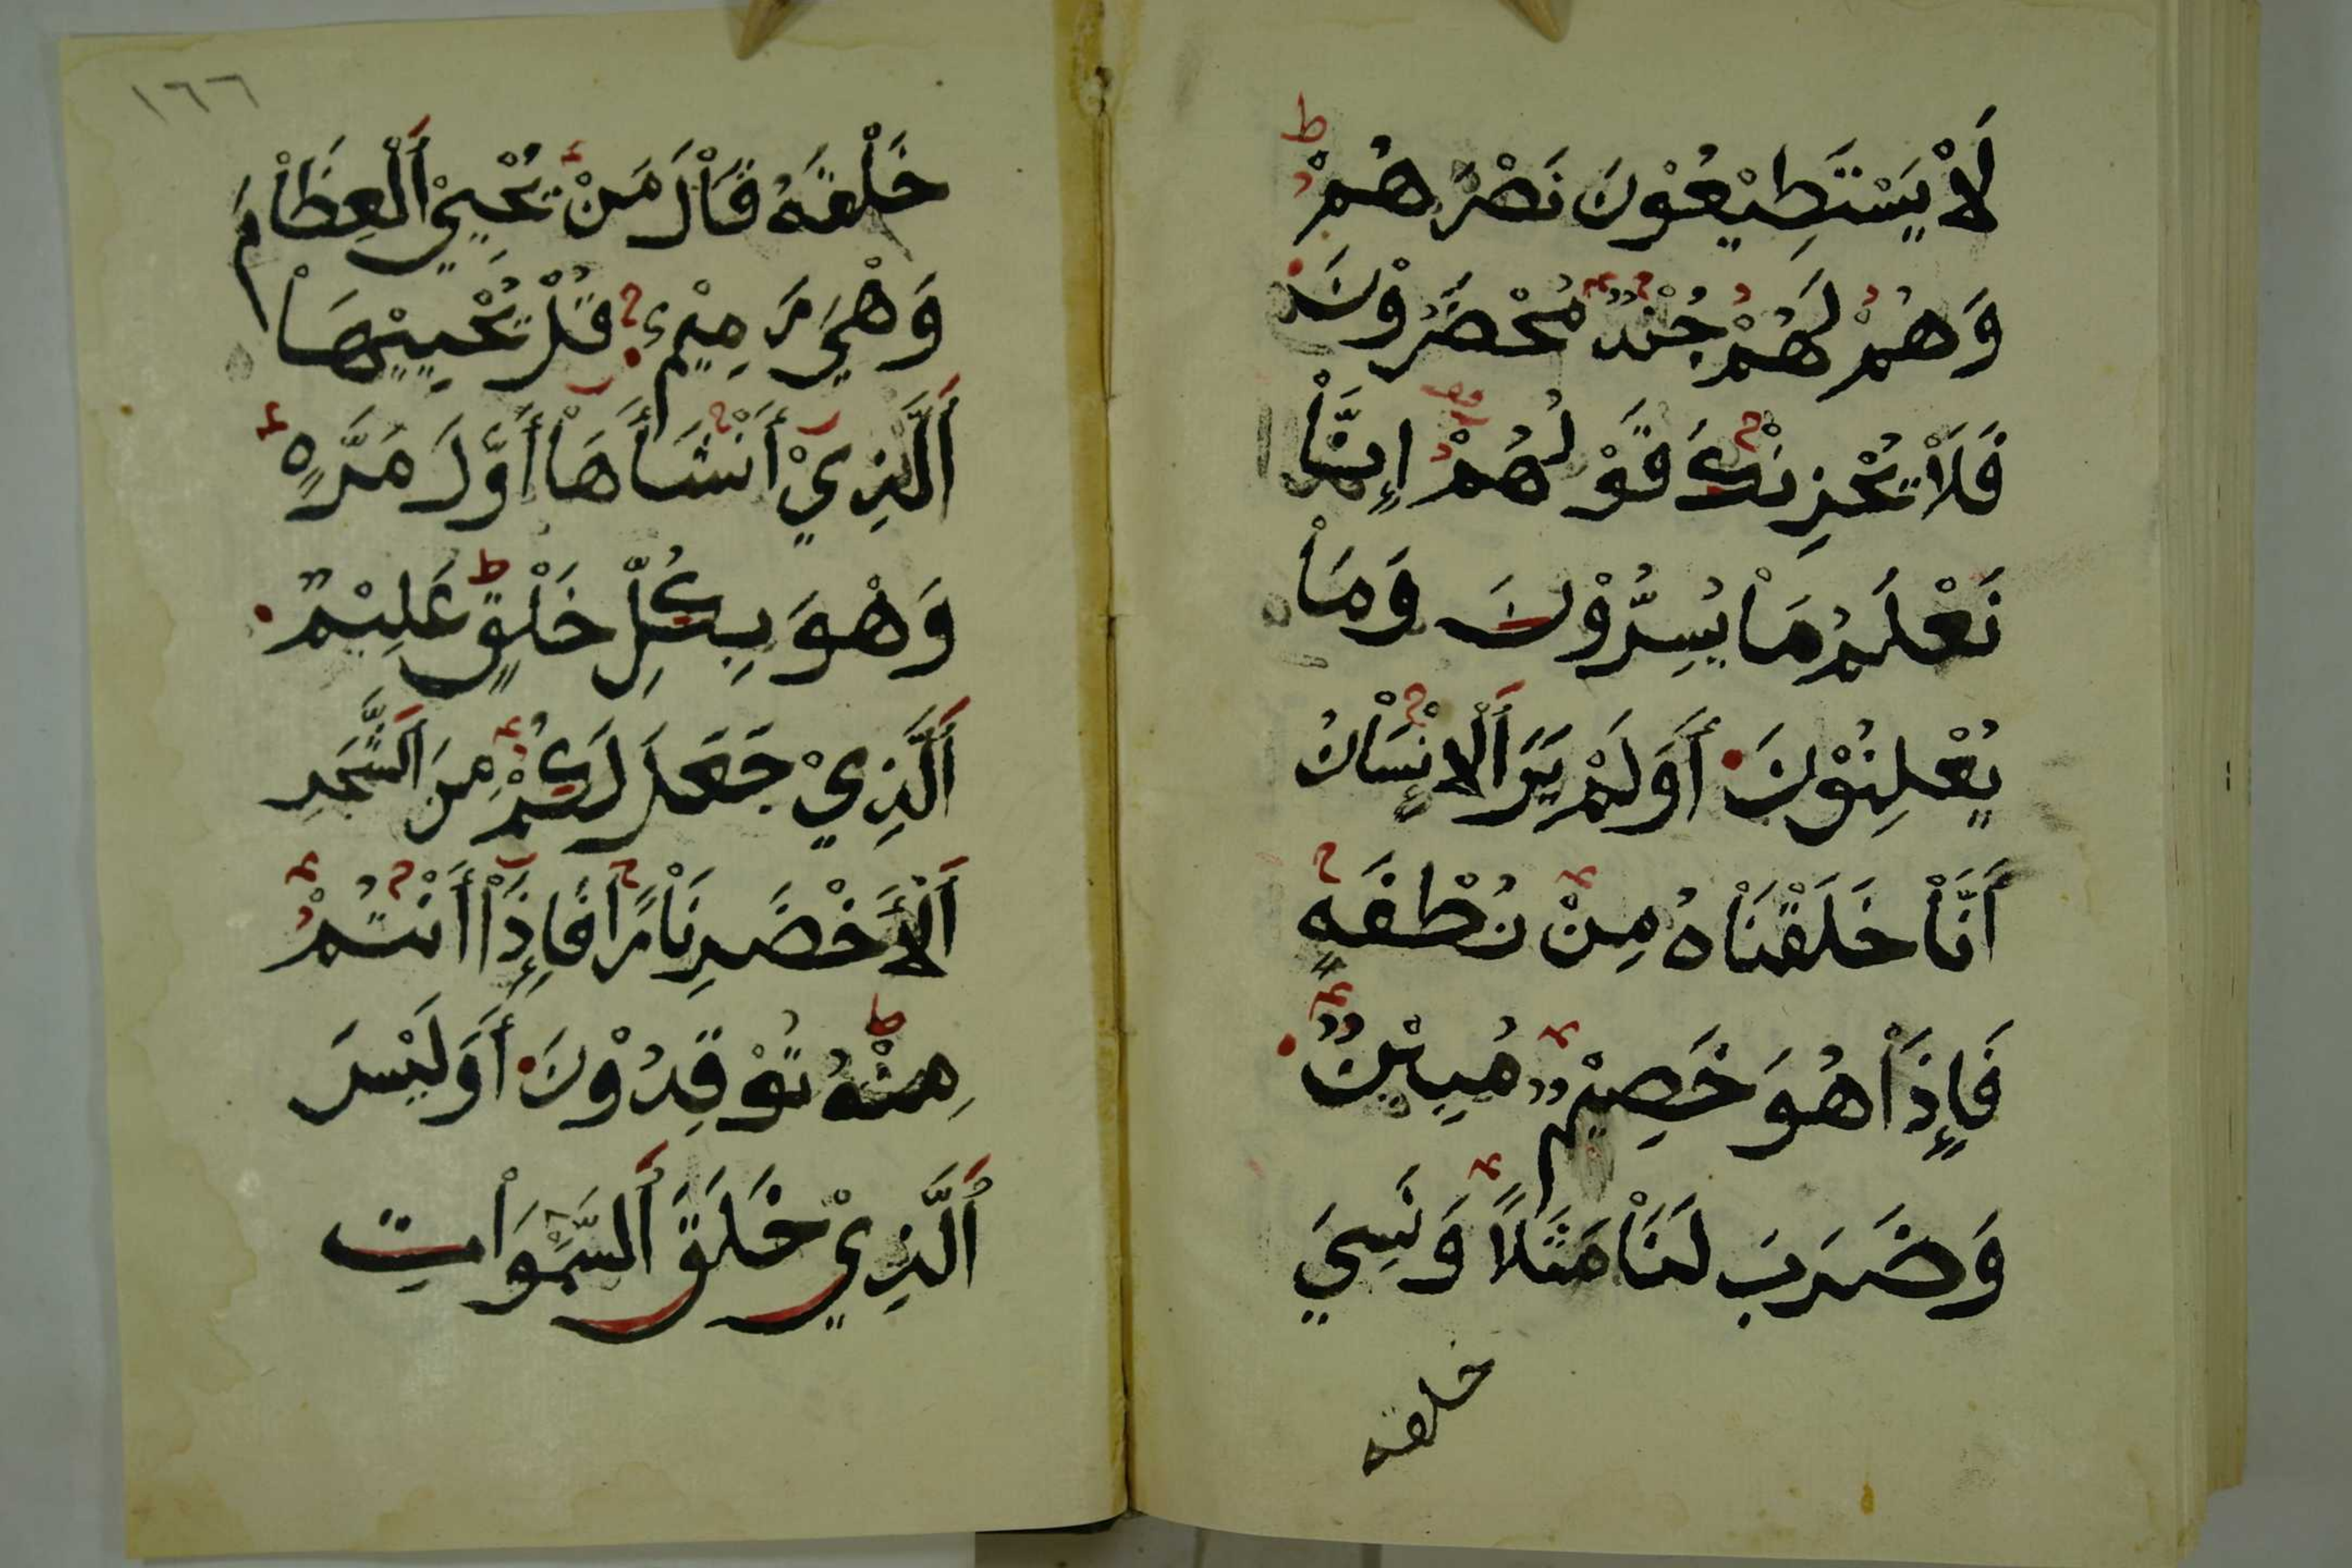 لَاْ يَسْتَطِيْعُوْنَ نَصْرَهُمْ
وَهُمْ لَهُمْ جُنْدٌ مُحْضَرُوْنَ
فَلَاْ يُحْزِنْكَ قَوْلُهُمْ إِنَّاْ
نَعْلَمُ مَاْ يُسِرُّوْنَ وَمَاْ
يُعْلِنُوْنَ أَوَلَمْ يَرَ اَلْاِنْسَاْنُ
أَنَّاْ خَلَقْنَاْهُ مِنْ نُطْفَةٍ
فَإِذَاْ هُوَ خَصِيْمٌ مُبِيْنٌ
وَضَرَبَ لَنَاْ مَثَلًا وَنَسِيَ
خلقه
١٦٦
خَلْقَهُ قَاْلَ مَنْ يُحْيِيْ اَلْعِظَاْمَ
وَهْيَ رَمِيْمٌ قُلْ يُحْيِيْهَاْ
اَلَّذِيْ أَنْشَأَهَاْ أَوَّلَ مَرَّةٍ
وَهْوَ بِكُلِّ خَلْقٍ عَلِيْمٌ
اَلَّذِيْ جَعَلَ لَكُمْ مِنَ اَلشَّجَرِ
اَلْأَخْضَرِ نَاْرًا فَإِذَاْ أَنْتُمْ
مِنْهُ تُوْقِدُوْنَ أَوَلَيْسَ
اَلَّذِيْ خَلَقَ اَلسَّمَوَاْتِ